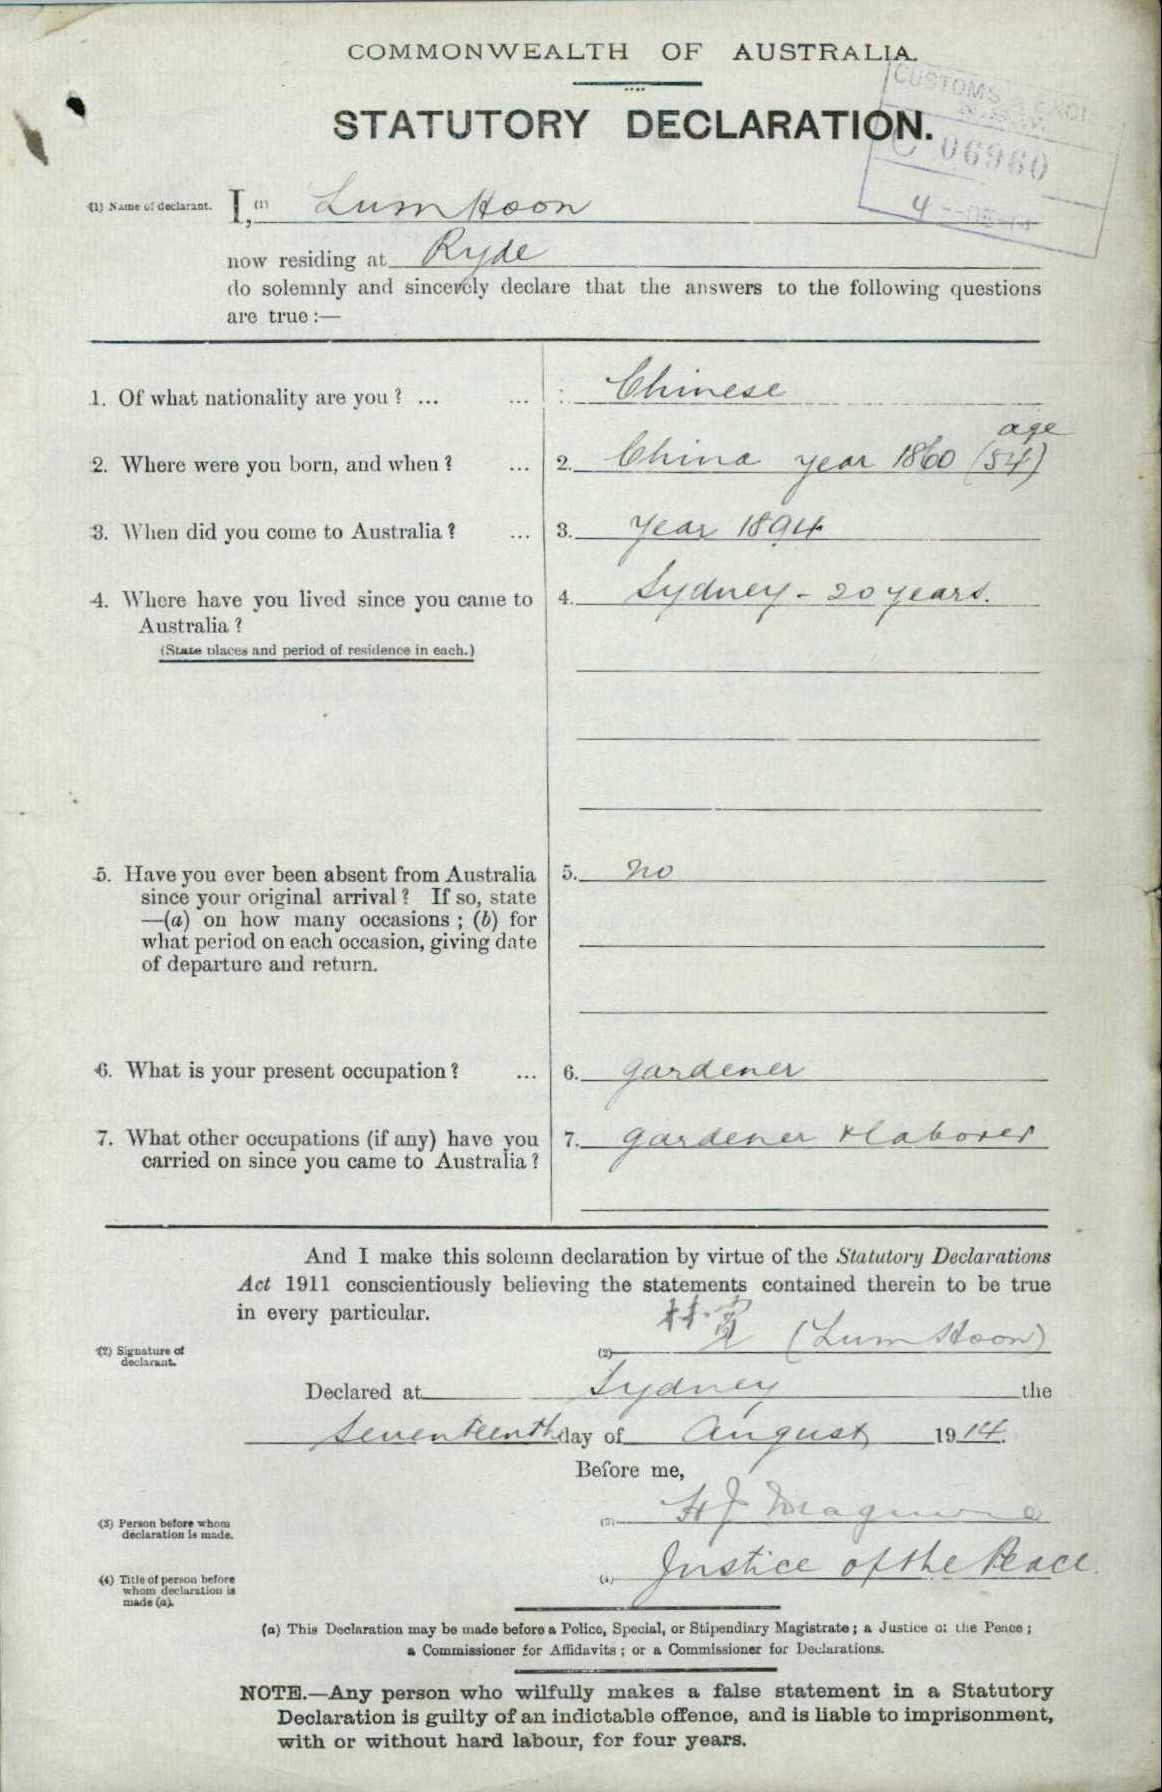 COMMONWEALTH OF AUSTRALIA.
STATUTORY DECLARATION.
CUSTOMS & EXCI
N.S.W.
C 06960
4
(1) Name of declarant. I, (1) Lum Hoon
now residing at Ryde
do solemnly and sincerely declare that the answers to the following questions
are true :—
1. Of what nationality are you ? ... ... : Chinese
age
2. Where were you born, and when ? ... 2. China year 1860 (54)
3. When did you come to Australia ? ... 3. Year 1894
4. Where have you lived since you came to 4. Sydney - 20 years.
Australia ?
(State places and period of residence in each.)
5. Have you ever been absent from Australia 5. no
since your original arrival ? If so, state
—(a) on how many occasions ; (b) for
what period on each occasion, giving date
of departure and return.
6. What is your present occupation ? ... 6. gardener
7. What other occupations (if any) have you 7. gardener & laborer
carried on since you came to Australia ?
And I make this solemn declaration by virtue of the Statutory Declarations
Act 1911 conscientiously believing the statements contained therein to be true
in every particular.
(2) Signature of (2) (Lum Hoon)
declarant.
Declared at Sydney the
Seventeenth day of August 1914.
Before me,
(3) Person before whom (3) H J
declaration is made.
(4) Title of person before (4) Justice of the Peace.
whom declaration is
made (a).
(a) This Declaration may be made before a Police, Special, or Stipendiary Magistrate ; a Justice of the Peace ;
a Commissioner for Affidavits ; or a Commissioner for Declarations.
NOTE.—Any person who wilfully makes a false statement in a Statutory
Declaration is guilty of an indictable offence, and is liable to imprisonment,
with or without hard labour, for four years.